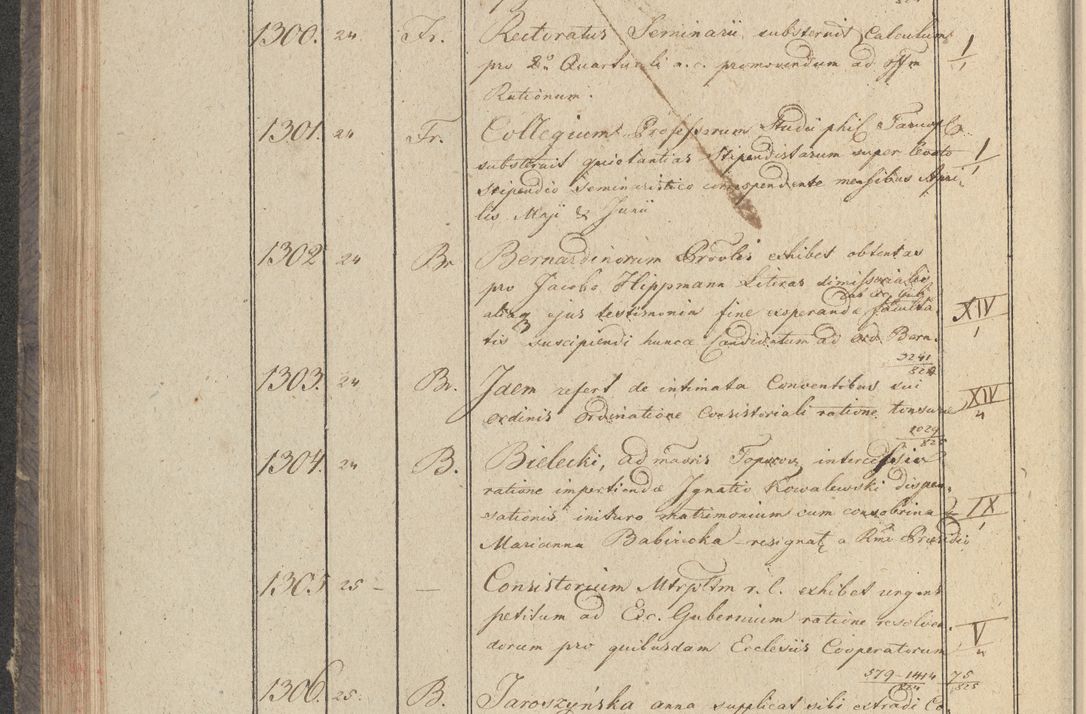 1300. 24. Fr. Rectoratus Seminarii substernit Calculum 1/1
pro 2do Quarturali a. c. promovendum ad Offm
Rationum.
1301. 24 Fr. Collegium Professorum Studii phil. Tarnop.
substernit quietantias Stipendistarum super levato 1/1
stipendio seminaristico correspondente mensibus Apri-
lis Maji & Junii
1302 24 Br Bernardinorum Provlis exhibet obtentas
pro Jacobo Hippmann Literas dimissoriales
aliaq ejus testimonia fine exoperandae faculta XIV/1
tis suscipiendi hunce Candidatum ad Ord. Bern.
3241
1303. 24 Br. Idem refert de intimata Conventibus sui
ordinis Ordinatione Consistoriali ratione tonsurae XIV/4
2029/825
1304. 24 B. Bielecki, ad intercessio
ratione impertiendae Ignatio Kowalewski dispen-
sationis inituro matrimonium cum consobrina IX/1
Marianna Babiecka resignat a Rmi Praesidio
1305 25 - — Consistorium r. l. exhibet urgens
petitum ad Exc. Gubernium ratione resolven-
dorum pro quibusdam Ecclesiis Cooperatorum V/4
579-1414 75/825
1306. 25. B. Jaroszyńska anna supplicat sibi extradi Co